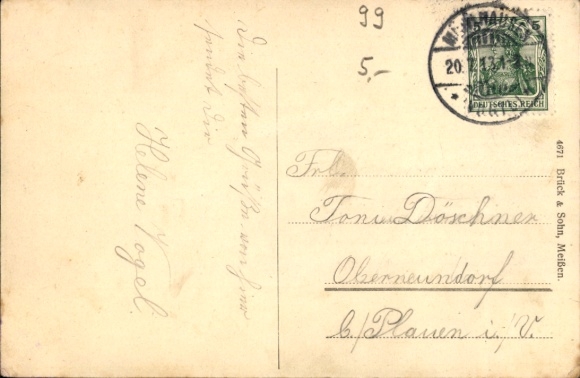 99
5,-
5
20.7.12.
DEUTSCHES REICH
Die besten Grüße von hier
sendet Dir
Helene Vogel.
Frl.
Toni Döschner
Oberneundorf
b/Plauen i./V.
4671 Brück & Sohn, Meißen.